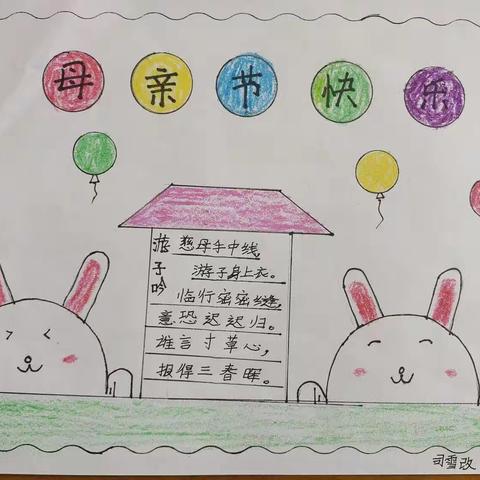 母亲节快乐
游子吟
慈母手中线,
游子身上衣。
临行密密缝,
意恐迟迟归。
谁言寸草心,
报得三春晖。
司雪改